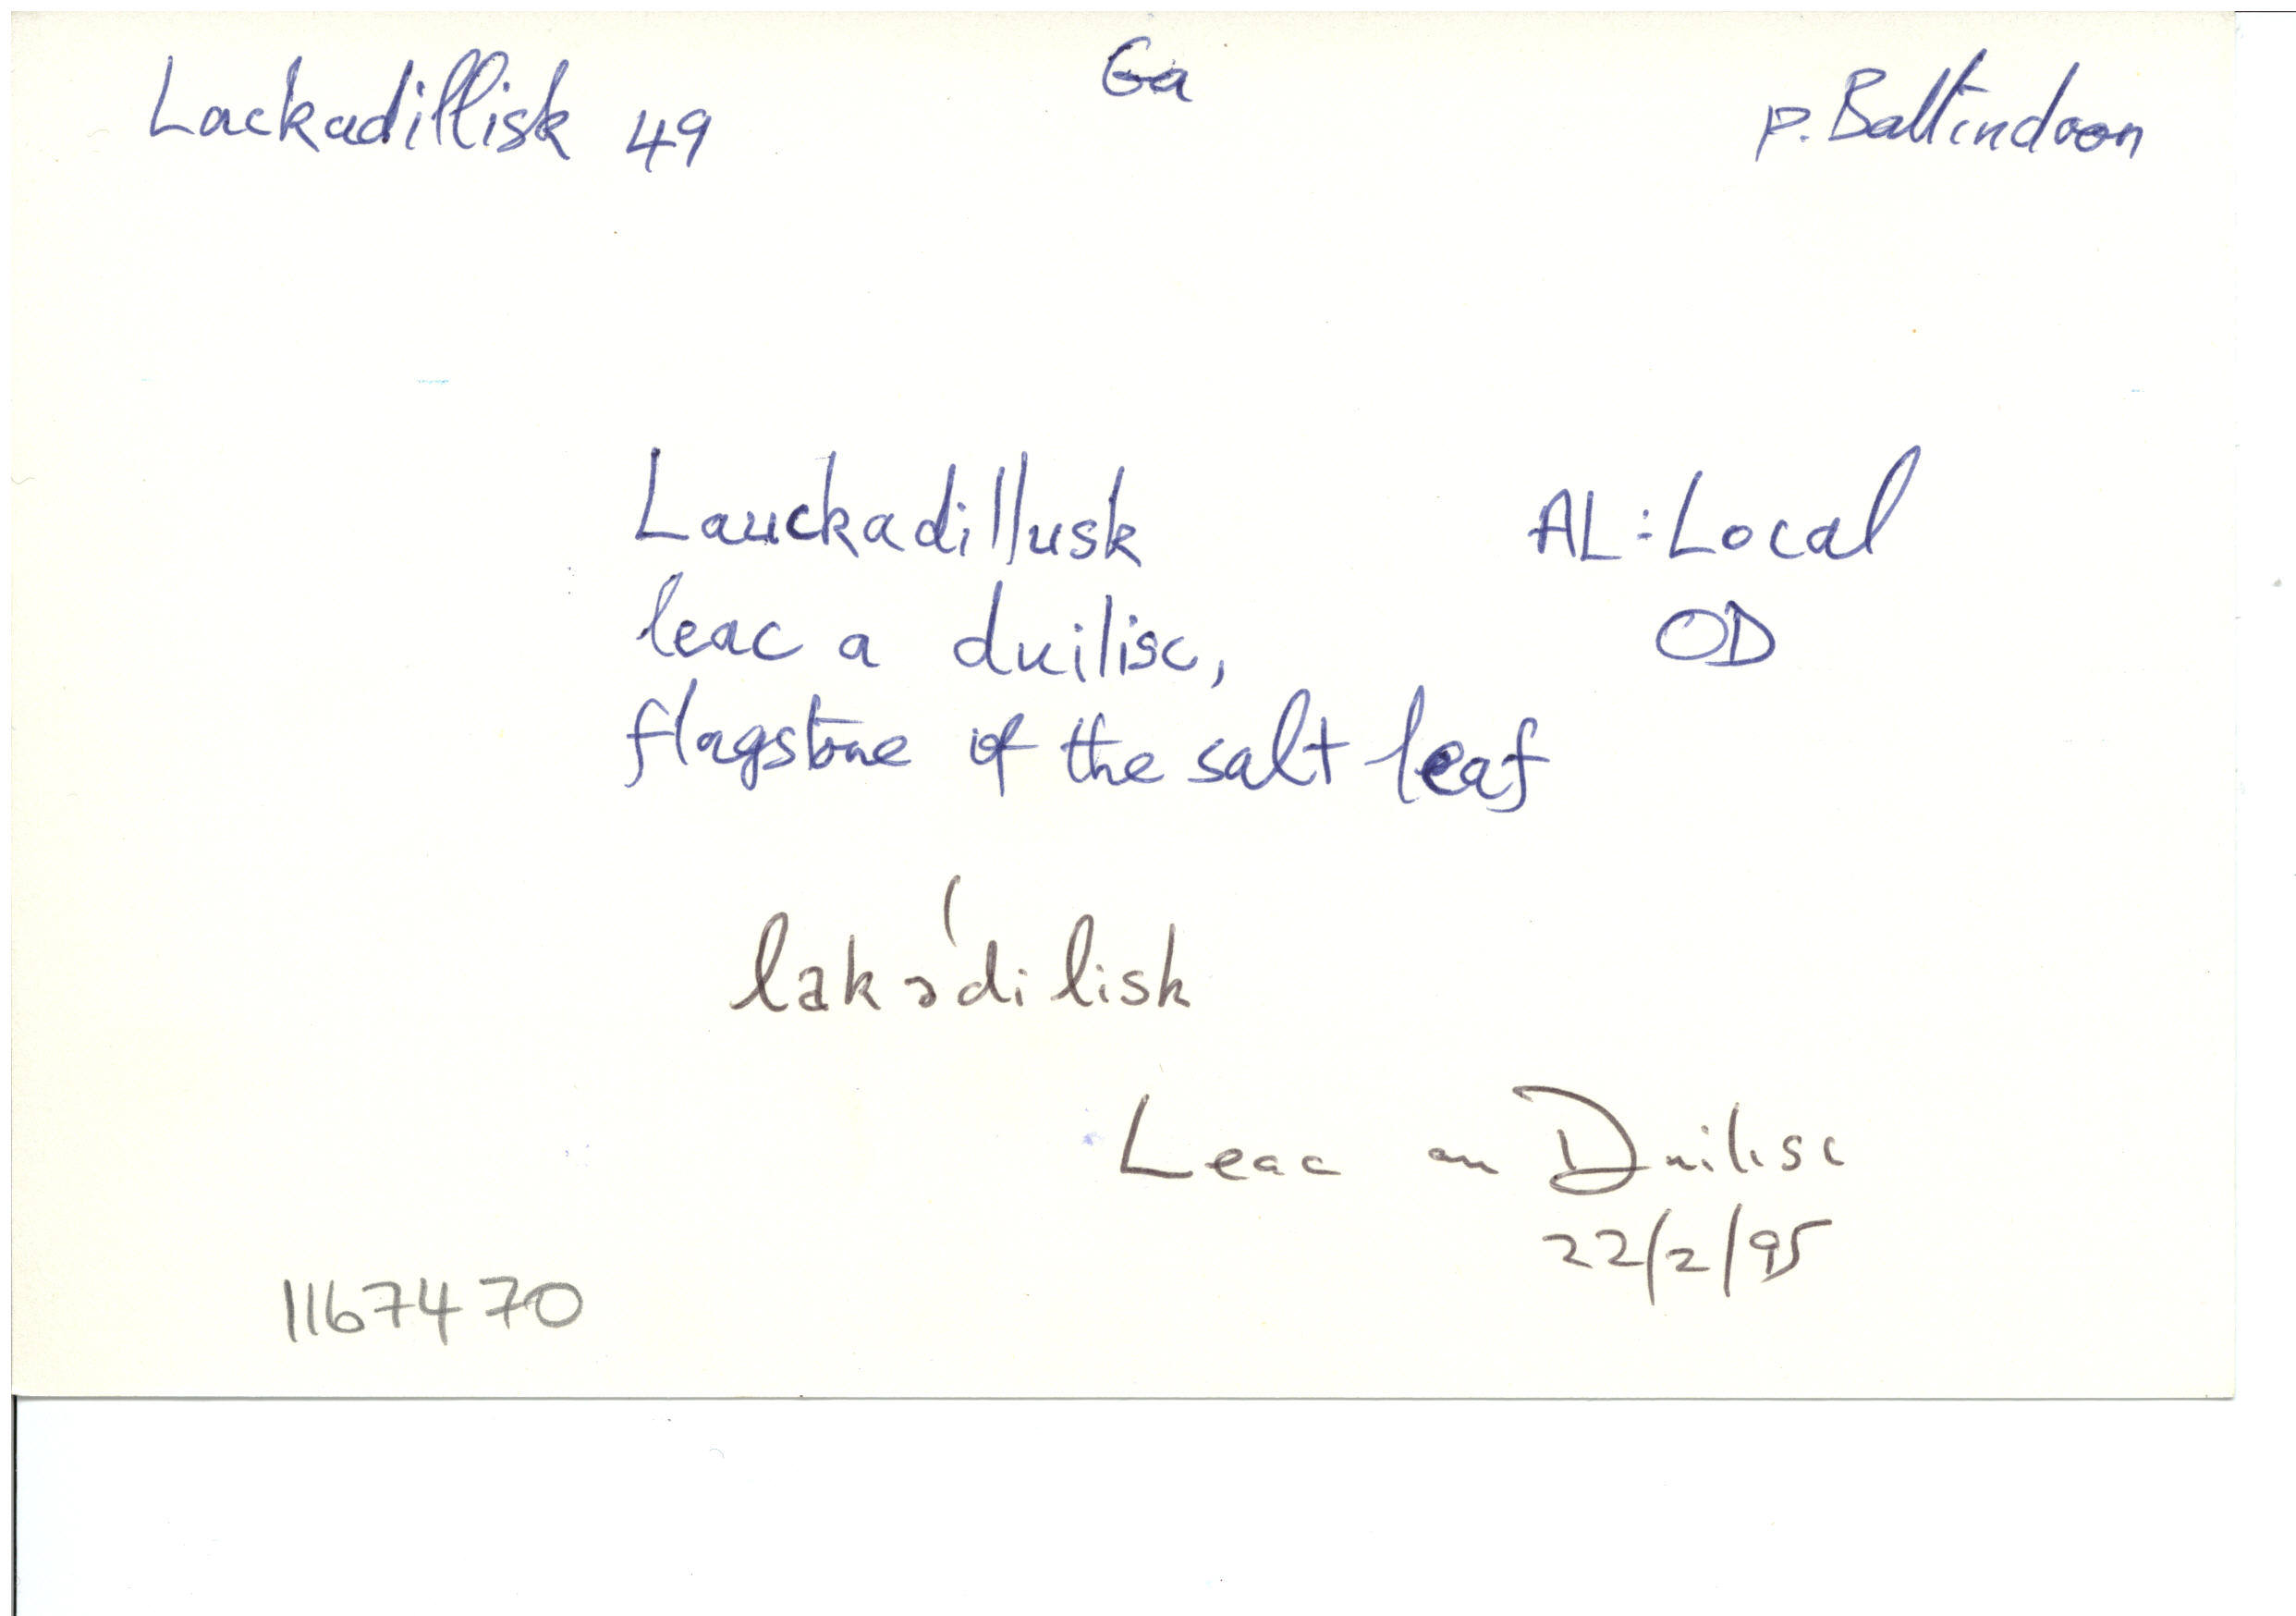 Lackadillisk 49 Ga p. Ballindoon
Lauckadillusk AL: Local
leac a duilisc, OD
flagstone of the salt leaf
lakəˈdilisk
Leac an Duilisc
22/2/95
1167470